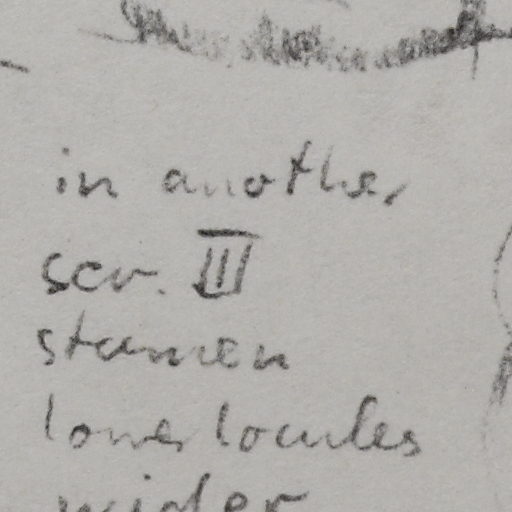 in another
scr. III
stamen
lower locules
wider